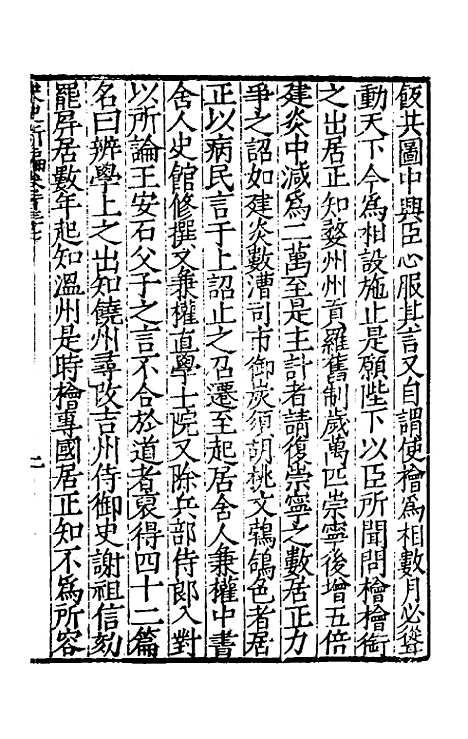 飯共圖中興臣心服其言又自謂使檜爲相數月必聳
動天下今爲相設施止是願陛下以臣所聞問檜檜銜
之出居正知婺州州貢羅舊制歲萬匹崇寧後增五倍
建炎中減爲二萬至是主計者請復崇寧之數居正力
爭之詔如建炎數漕司市御炭須胡桃文鵓鴿色者居
正以病民言于上詔止之召遷至起居舍人兼權中書
舍人史館修撰又兼權直學士院又除兵部侍郎入對
以所論王安石父子之言不合於道者裒得四十二篇
名曰辨學上之出知饒州尋改吉州侍御史謝祖信劾
罷屏居數年起知溫州是時檜專國居正知不爲所容
宋史新編卷
二